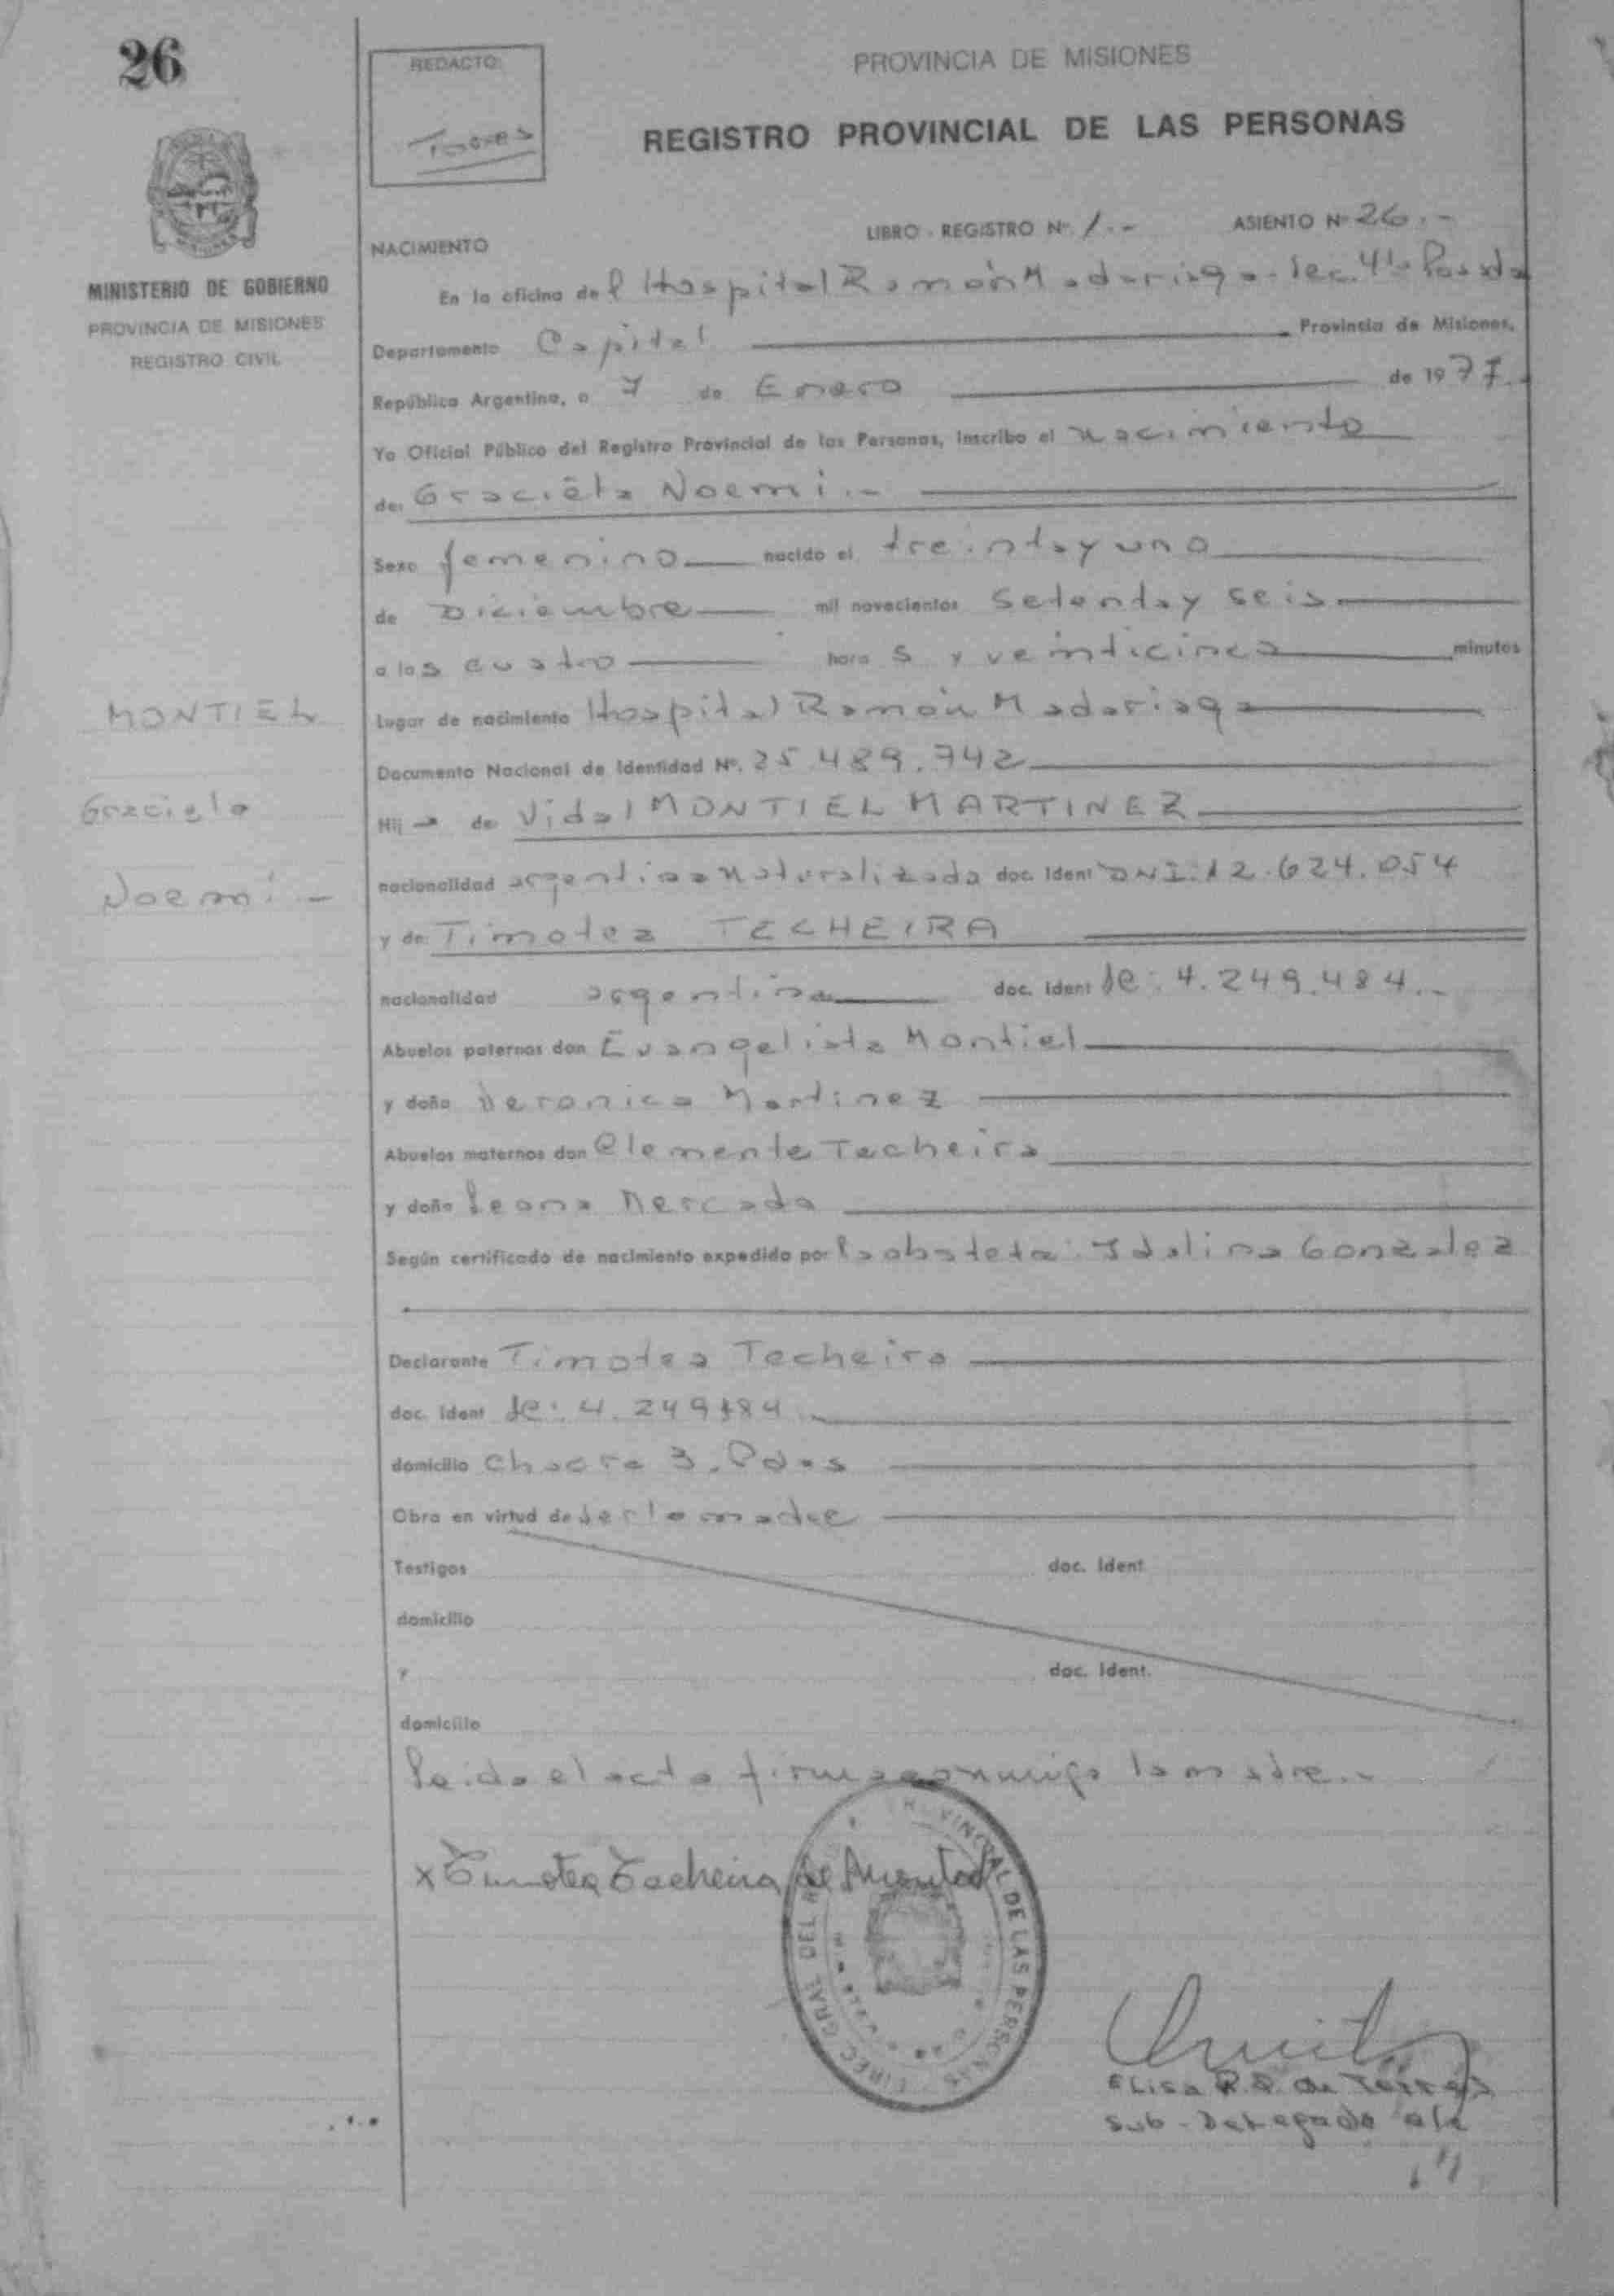 26
REDACTO:
Torres
PROVINCIA DE MISIONES
REGISTRO PROVINCIAL DE LAS PERSONAS
MINISTERIO DE GOBIERNO
PROVINCIA DE MISIONES
REGISTRO CIVIL
LIBRO - REGISTRO Nº 1.- ASIENTO Nº 26.-
NACIMIENTO
En la oficina del Hospital Ramón Madariaga - Sec. 4ta
Departamento Capital Provincia de Misiones,
República Argentina, a 7 de Enero de 1977.-
Yo Oficial Público del Registro Provincial de las Personas, inscribo el nacimiento
de: Graciela Noemi.-
Sexo femenino nacido el treinta y uno
de Diciembre mil novecientos setenta y seis
a las cuatro horas y veinticinco minutos
MONTIEL
Graciela
Noemi -
Lugar de nacimiento Hospital Ramón Madariaga
Documento Nacional de Identidad Nº. 25.489.742
Hij a de Vidal MONTIEL MARTINEZ
nacionalidad argentina naturalizado doc. ident DNI: 12.624.054
y de: Timotea TECHEIRA
nacionalidad argentina doc. ident lc: 4.249.484.-
Abuelos paternos don Evangelista Montiel
y doña Veronica Martinez
Abuelos maternos don Clemente Techeira
y doña Leona Mercado
Según certificado de nacimiento expedido por la obsteta: Idalina Gonzalez
Declarante Timotea Techeira
doc. ident lc: 4.249484.-
domicilio Chacra 3. Pdas
Obra en virtud de ser la madre
Testigos doc. ident
domicilio
y doc. ident.
domicilio
Leida el acta firma conmigo la madre.-
x Timotea Techeira de Montiel
DIREC. GRAL. DEL R PROVINCIAL DE LAS PERSONAS
Elisa R. de Torres
Sub-Delegada